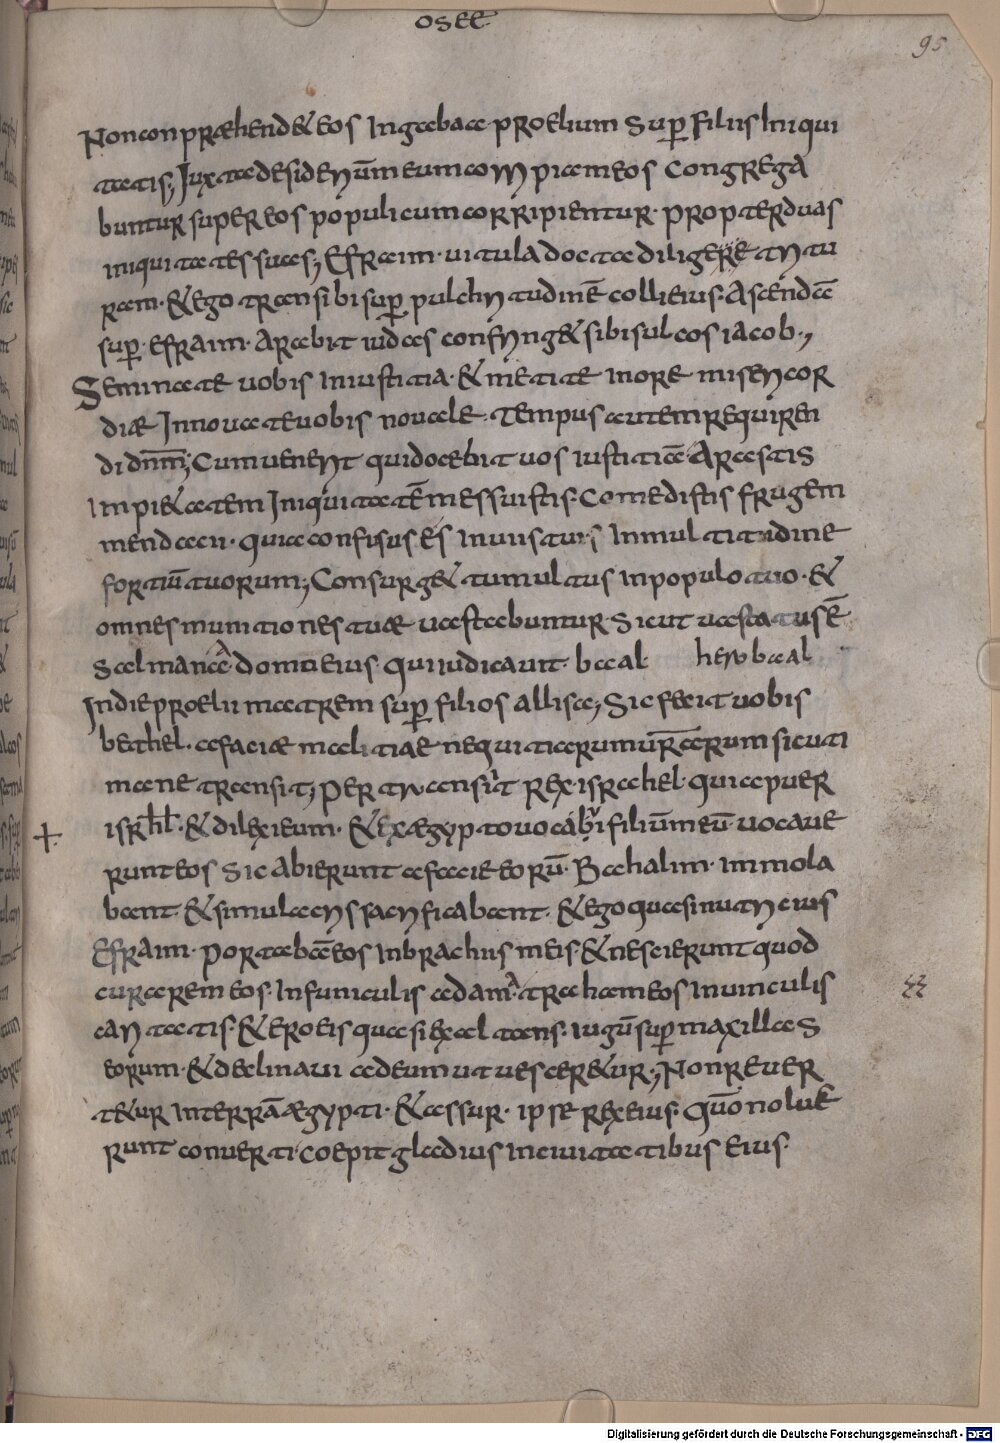 OSEE
95
Non conpræhendet eos Ingabaa proelium Sup̄ Filiis Iniqui
tatis; Juxta desideriūm eum corripiam eos Congrega
buntur super eos populi cum corripientur. propter duas
iniquitates suas; Efraim. uitula docta diligere tritu
ram. & ego transibi sup̄ pulchritudinē colli eius. Ascendā
sup̄. Efraim. Arabit iudas confringet sibi sulcos iacob.,
Seminate uobis Iniustitia. & metite Inore misericor
diæ Innouate uobis nouale. Tempus autem requiren
di dn̄m; Cum uenerit qui docebit uos iustitiā Arastis
Impietatem Iniquitatē messuistis. Comedistis frugem
mendacii. quia confisus es Inuiis tuis Inmultitudine
fortiū tuorum; Consurget tumultus Inpopulo tuo. &
omnes munitiones tuæ uastabuntur Sicut uastatus ē
Salmana A domu eius. qui iudicauit. baal heroboal
In die proelii matrem sup̄ filios allisa; Sic fecit uobis
bethel. a faciæ malitiae nequitiarum ur̄arum sicuti
mane transit; Pertransiit rex israhel. quia puer
isrhl. & dilexi eum. & ex ægypto uocabi filiūm eū. uocaue
runt eos Sic Abierunt a facie eorū. Bahalim. Immola
bant. & simulacris sacrificabant. & ego quasi nutricius
Efraim. portabā eos Inbrachiis meis. & nescierunt quod
curarem eos. Infuniculis adam. traham eos Inuinculis
caritatis. & ero eis quasi exaltans. iugū sup̄ maxillas
eorum. & declinaui ad eum ut uesceretur; Non reuer
tetur Interrā ægypti. & assur. ipse rex eius. Quō noluē
runt conuerti. Coepit gladius Inciuitatibus eius.
Digitalisierung gefördert durch die Deutsche Forschungsgemeinschaft - DFG